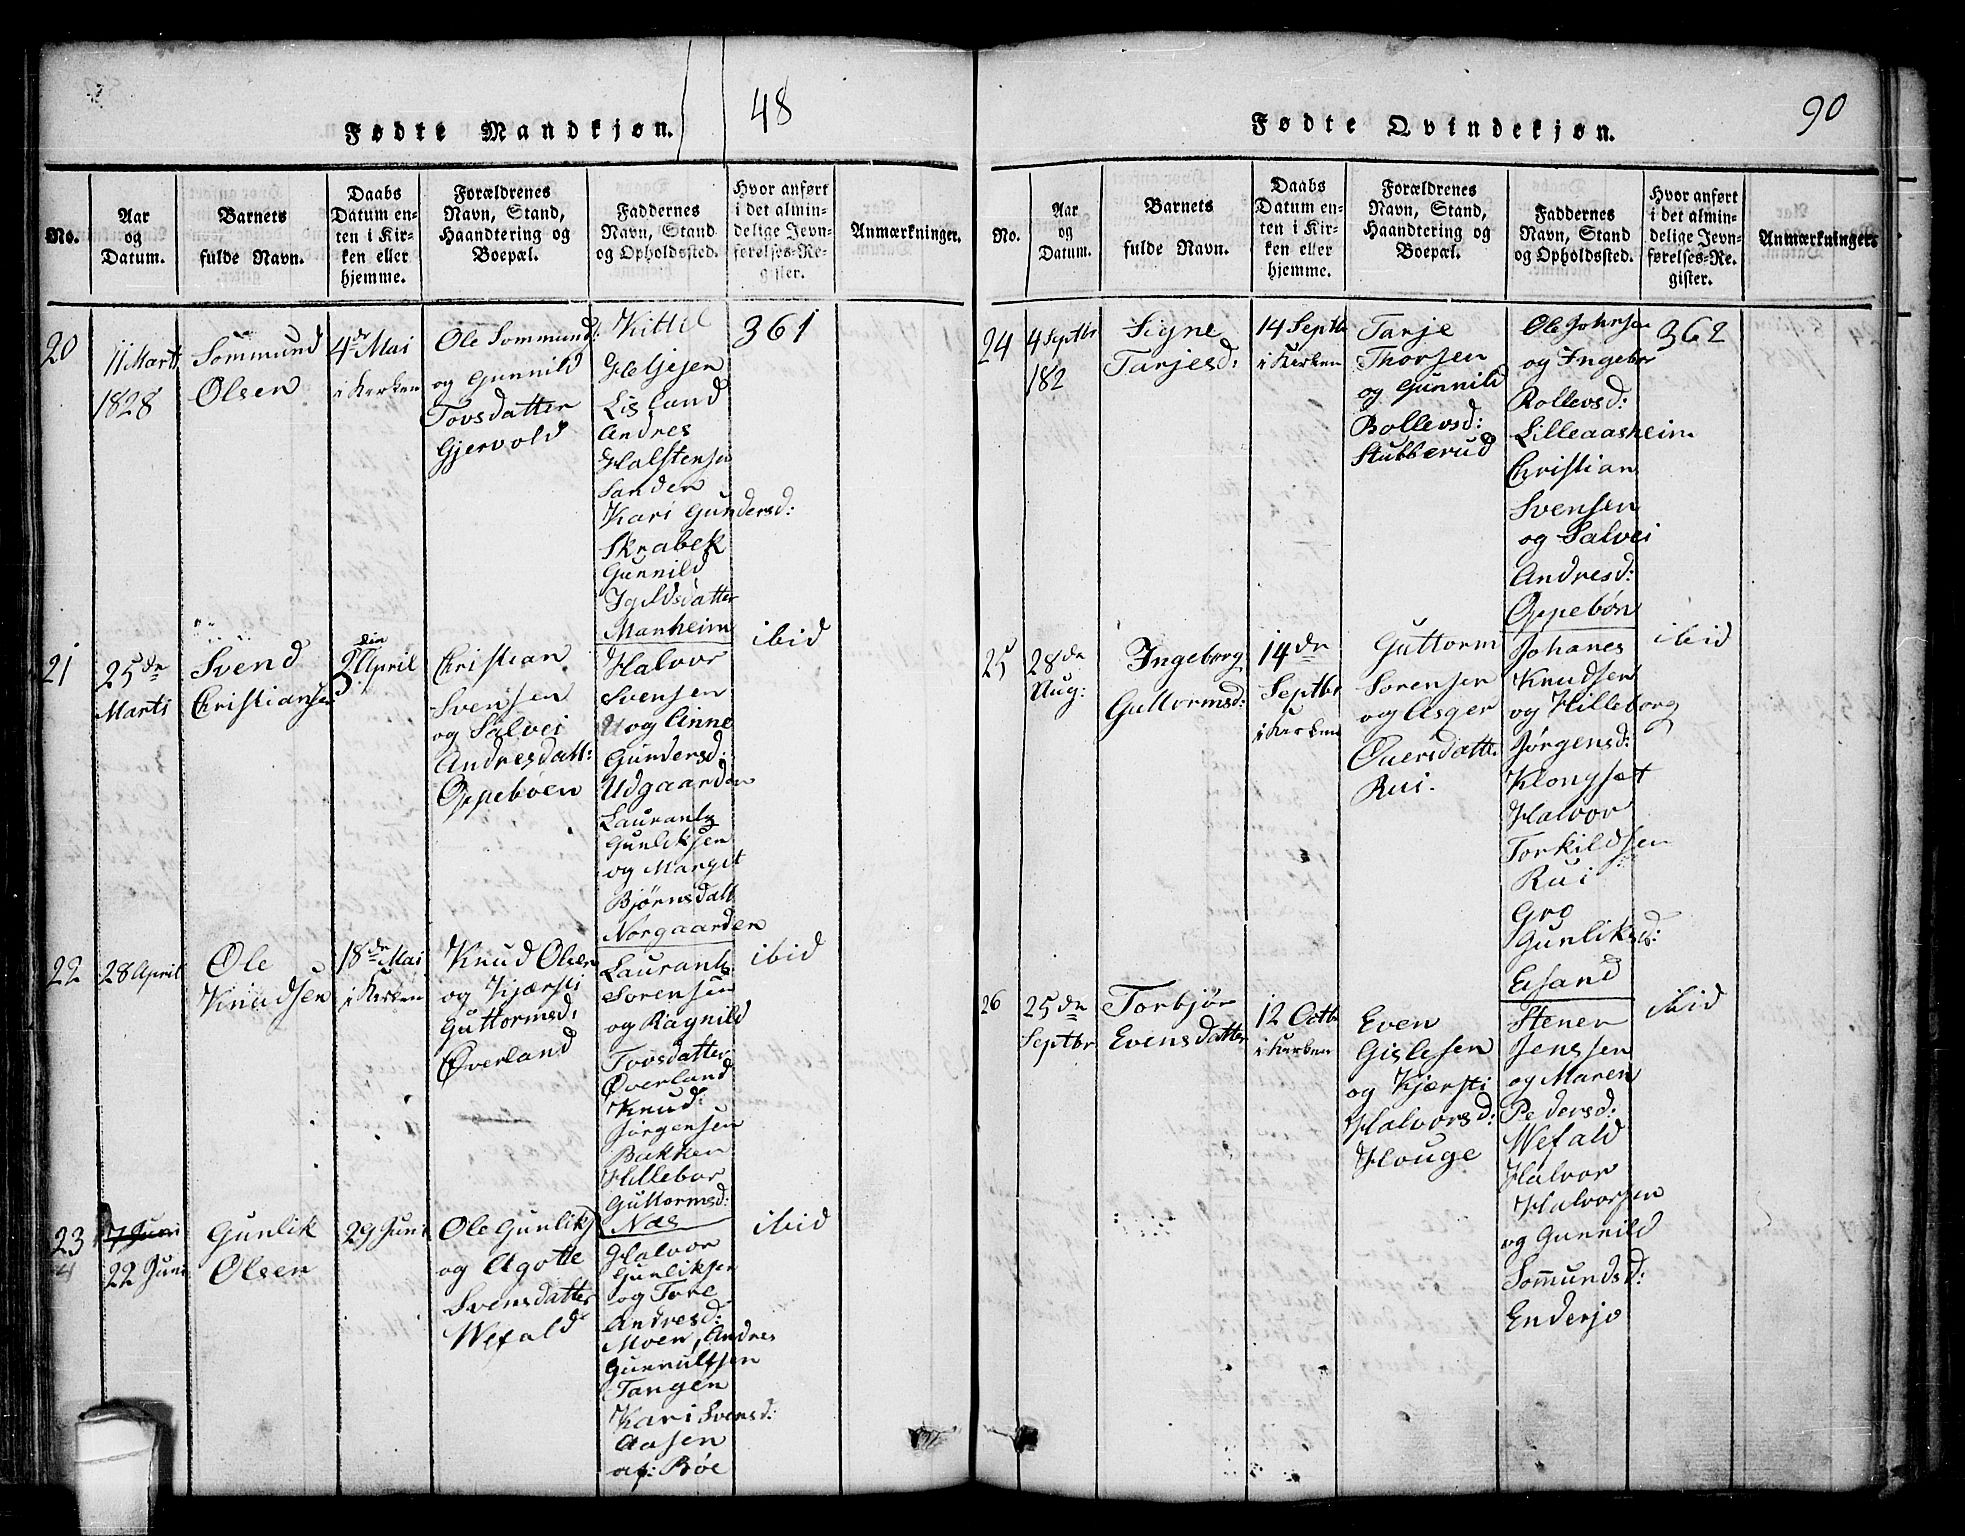 48
Fødte Mandkjøn.
No.
Aar
og
Datum.
Barnets
fulde Navn.
Daabs
Datum en-
ten i Kir-
ken eller
hjemme.
Forældrenes
Navn, Stand,
Haandtering og
Boepæl.
Faddernes
Navn, Stand
og Opholdssted.
Hvor anført
i det almin-
delige Jevn-
førelses-Re-
gister.
Anmærkninger.
20
11 Marts
1828
Sommund
Olsen
4de Mai
i Kerken
Ole Sommund:
og Gunnild
Tovsdatter
Gjervold
Kittil
Helgesen
Lisland
Andres
Halstensen
Sanden
Kari Gundersd:
Skrabek
Gunnild
Manheim
361
21
25de
Marts
Svend
Christiansen
den
April
Christian
Svensen
og Salvei
Andresdatt:
Oppebøen
Halvor
Svensen
og Anne
Gundersd:
Udgaarden
Laurants
Gunliksen
og Margit
Bjørnsdatt
Norgaarden
ibid
22
28 April
Ole
Knudsen
18de Mai
i Kerken
Knud Olsen
og Kjærsti
Guttormsd:
Øverland
Laurants
Sorensen
og Ragnild
Tovsdatter
Øverland
Knud
Jørgensen
Bakken
Hillebor
Guttormsd:
Næs
ibid
23
7 Juni
22 Juni
Gunlik
Olsen
29 Juni
Ole Gunliks
og Agotte
Svensdatter
Wefald
Halvor
Gunliksen
og Tore
Andresd:
Moen, Andres
Gunnulfsen
Tangen
Kari Svensd:
Aasen
af: Bøe
ibid
90
Fødte Qvindekjøn.
No.
Aar
og
Datum.
Barnets
fulde Navn.
Daabs
Datum en-
ten i Kir-
ken eller
hjemme.
Forældrenes
Navn, Stand,
Haandtering og
Boepæl.
Faddernes
Navn, Stand
og Opholdssted.
Hvor anført
i det almin-
delige Jevn-
førelses-Re-
gister.
Anmærkninger.
24
4 Septbr
182
Signe
Tarjesd:
14 Septb
i Kerken
Tarje
Thorsen
og Gunnild
Rollevsd:
Stubberud
Ole Johnsen
og Ingebor
Rollevsd:
Lilleaasheim
Christian
Svensen
og Salvei
Andresd:
Oppebön
362
25
28de
Aug:
Ingeborg
Guttormsd:
14de
Septbr
i Kerken
Guttorm
Sorensen
og Asger
Oversdatt.
Rui.
Johanes
Knudsen
og Hilleborg
Jørgensd:
Klongset
Halvor
Torkildsen
Rui
Gro
Gunliksd:
Eisand
ibid
26
25de
Septbr
Torbjør
Evensdatter
12 Octb
i Kerken
Even
Gislesen
og Kjærsti
Halvorsd:
Houge
Stener
Jenssen
og Maren
Pedersd:
Wefald
Halvor
Halvorsen
og Gunnild
Sommundsd:
Enderjo
ibid